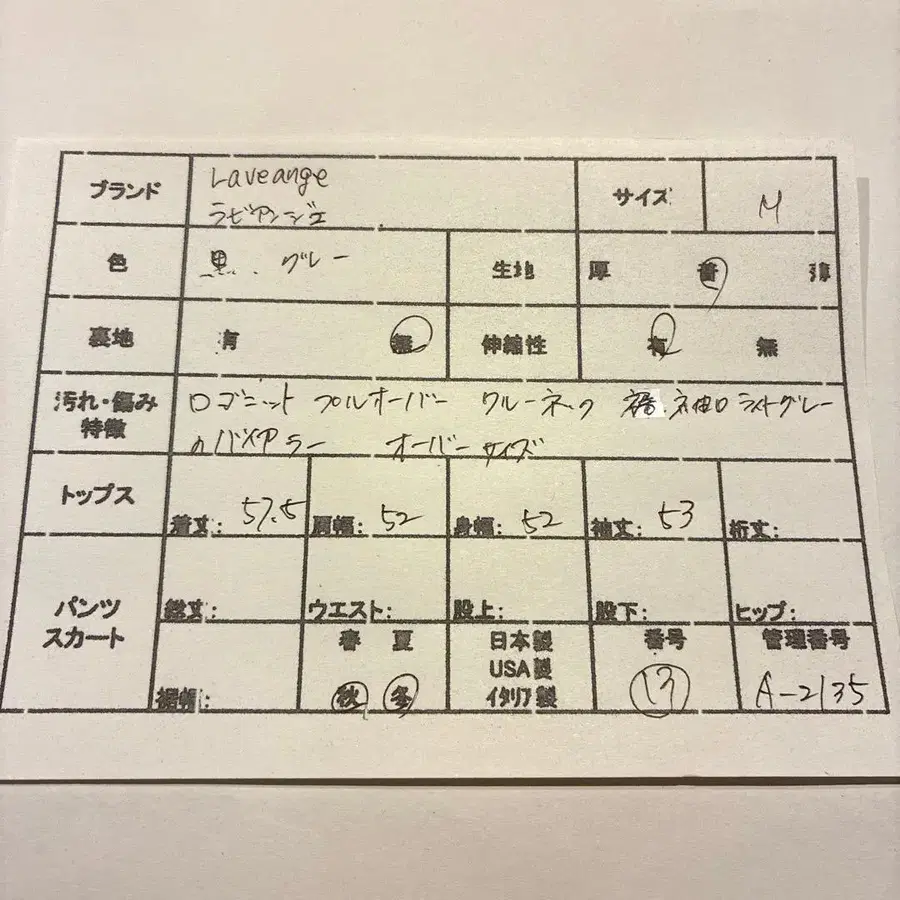 ブランド Laveange サイズ M
ラビアンジェ
色 黒、グレー 生地 厚 普 薄
裏地 有 無 伸縮性 有 無
汚れ・傷み ロゴニット プルオーバー クルーネック 裾、袖口ライトグレー
特徴 のバイアラー オーバーサイズ
トップス 着丈: 57.5 肩幅: 52 身幅: 52 袖丈: 53 裄丈:
パンツ
スカート 総丈: ウエスト: 股上: 股下: ヒップ:
裾幅: 春 夏 日本製 番号 管理番号
USA製
秋 冬 イタリア製 13 A-2135